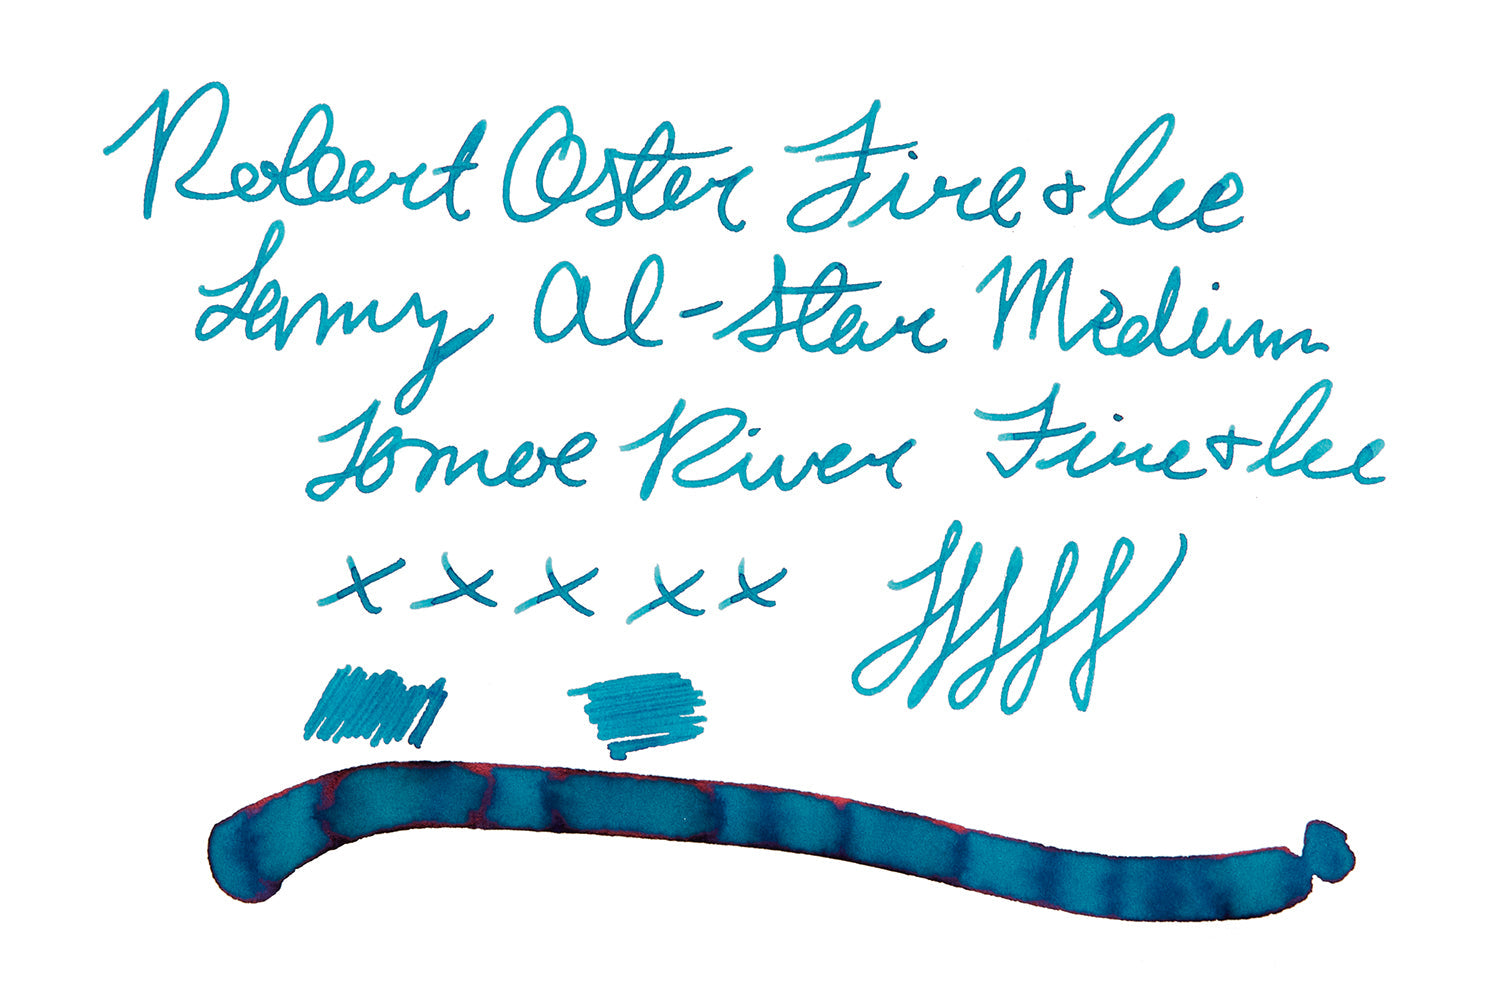 Robert Oster Fire & Ice
Lamy Al-Star Medium
Tomoe River Fire & Ice
x x x x x